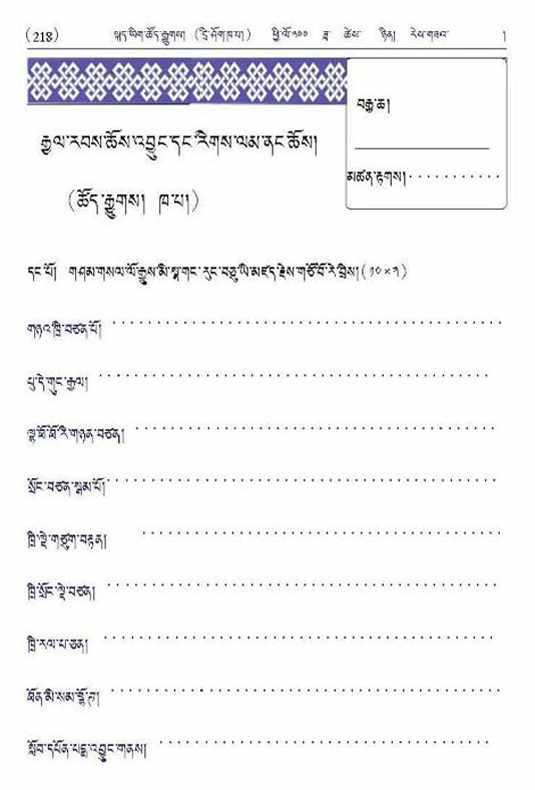 (218) སྐད་ཡིག་ཚོད་རྒྱུགས། (དྲི་ཤོག་ཁ་པ།) ཕྱི་ལོ་༢༠༠ ཟླ་ ཚེས་ ཉིན། རེས་གཟའ་ །
བརྒྱ་ཆ།
རྒྱལ་རབས་ཆོས་འབྱུང་དང་རིགས་ལམ་ནང་ཆོས།
མཚན་རྟགས།............
(ཚོད་རྒྱུགས། ཁ་པ།)
དང་པོ། གཤམ་གསལ་ལོ་རྒྱུས་མི་སྣ་གང་རུང་བཅུ་ཡི་མཛད་རྗེས་གཙོ་བོ་རེ་བྲིས། (༡༠×༡)
གཉའ་ཁྲི་བཙན་པོ། ............................................
པུ་དེ་གུང་རྒྱལ། ............................................
ལྷ་ཐོ་ཐོ་རི་གཉན་བཙན། ............................................
སྲོང་བཙན་སྒམ་པོ། ............................................
ཁྲི་ལྡེ་གཙུག་བརྟན། ............................................
ཁྲི་སྲོང་ལྡེ་བཙན། ............................................
ཁྲི་རལ་པ་ཅན། ............................................
ཐོན་མི་སམ་བྷོ་ཊ། ............................................
སློབ་དཔོན་པདྨ་འབྱུང་གནས། ............................................